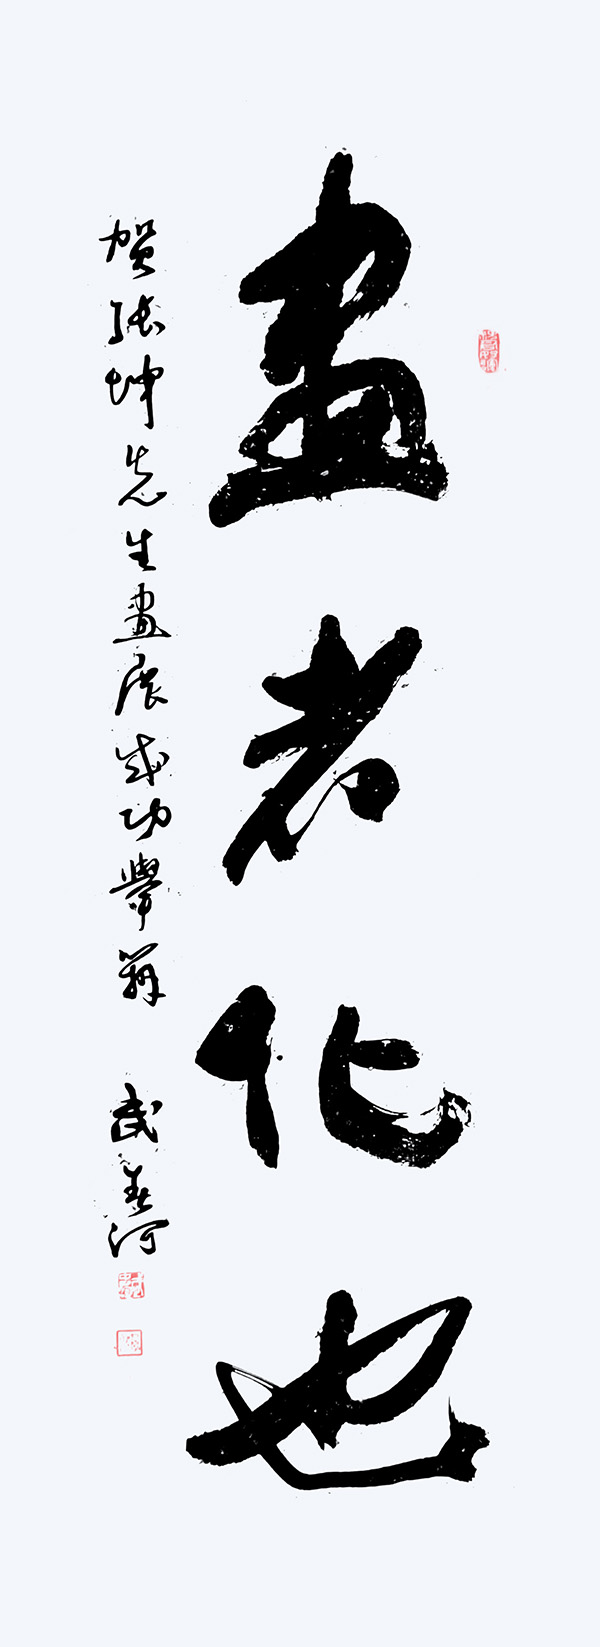 畫者化也
賀張坤先生畫展成功舉辦 武春河